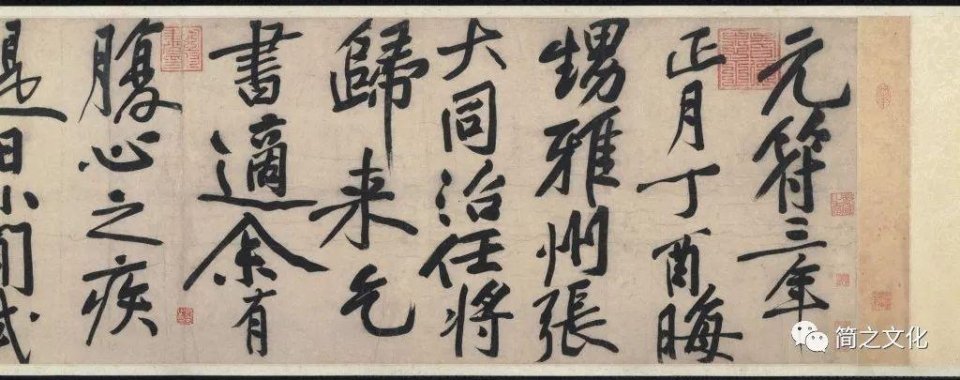 元符三年
正月丁酉晦
甥雅州張
大同治任將
歸来乞
書適余有
腹心之疾
是日小閒試
简之文化